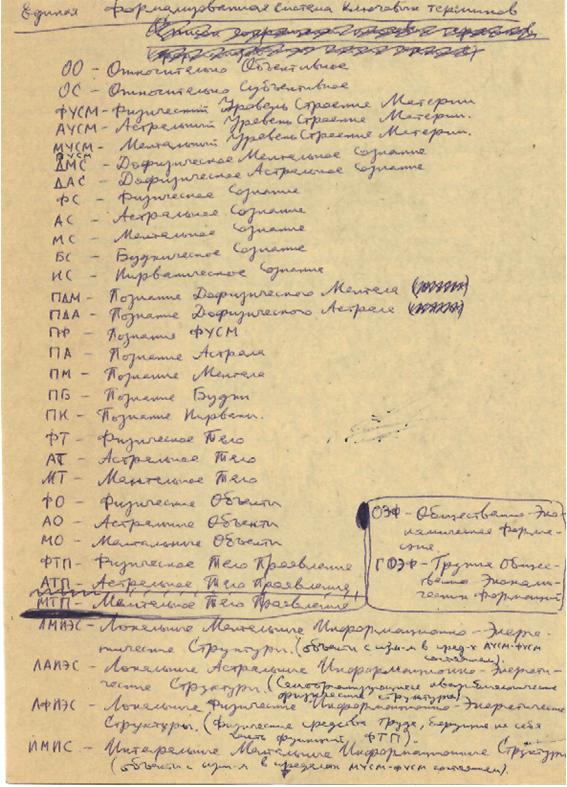 Единая формализованная система ключевых терминов
ОО - Относительно Объективное
ОС - Относительно Субъективное
ФУСМ - Физический Уровень Строение Материи
АУСМ - Астральный Уровень Строение Материи.
МУСМ - Ментальный Уровень Строение Материи.
ДМС - Дофизическое Ментальное Сознание
ДАС - Дофизическое Астральное Сознание
ФС - Физическое Сознание
АС - Астральное Сознание
МС - Ментальное Сознание
БС - Буддическое Сознание
НС - Нирваническое Сознание
ПДМ - Познание Дофизического Ментала
ПДА - Познание Дофизического Астрала
ПФ - Познание ФУСМ
ПА - Познание Астрала
ПМ - Познание Ментала
ПБ - Познание Будди
ПН - Познание Нирваны.
ФТ - Физическое Тело
АТ - Астральное Тело
МТ - Ментальное Тело
ФО - Физические Объекты
АО - Астральные Объекты
МО - Ментальные Объекты
ФТП - Физическое Тело Проявления
АТП - Астральное Тело Проявления
МТП - Ментальное Тело Проявления
ОЭФ - Общественно-Эко-
номическая Форма-
ция
ГОЭФ - Группа Общес-
твенно Экономи-
ческих Формаций
ЛМИЭС - Локальные Ментальные Информационно-Энерге-
тические Структуры. (объекты с изм-я в пред-х АУСМ-ФУСМ
состояний).
ЛАИЭС - Локальные Астральные Информационно-Энергети-
ческие Структуры. (
физические структуры).
ЛФИЭС - Локальные Физические Информационно-Энергетические
Структуры. (Физические средства труда, берущие на себя
часть функций ФТП).
ИМИС - Интегральные Ментальные Информационные Структуры
(объекты с изм-я в пределах МУСМ-ФУСМ состояний).